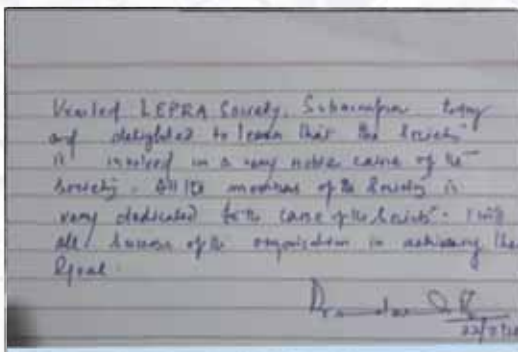 Visited LEPRA Society, today
and delighted to learn that the Society
is involved in a very noble cause of the
Society. All the members of the Society is
very dedicated to the cause of the Society. I wish
all success of the organisation in achieving the
Goal.